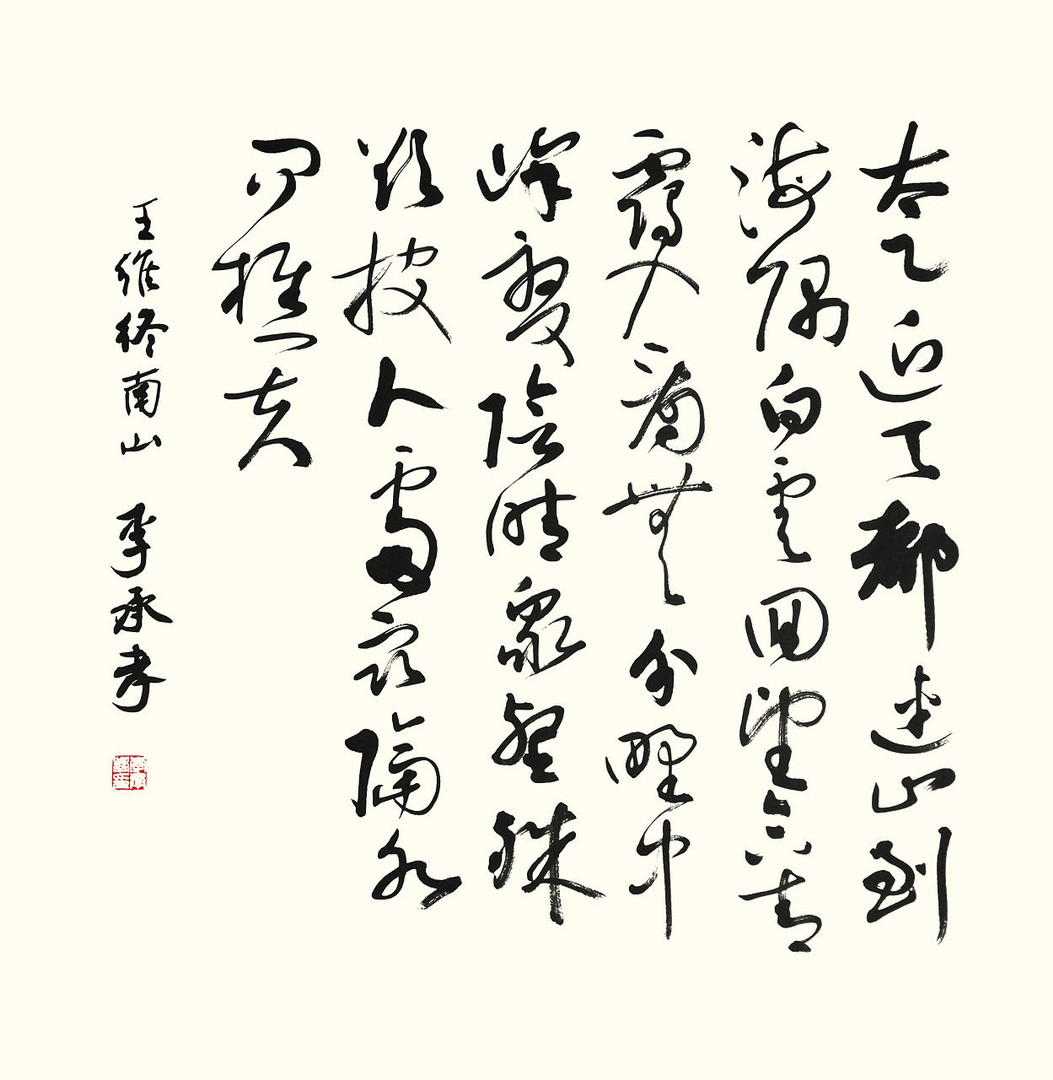 太乙近天都連山到
海隅白雲回望合青
靄入看無分野中
峰變陰晴眾壑殊
欲投人處宿隔水
問樵夫
王維終南山 李承孝